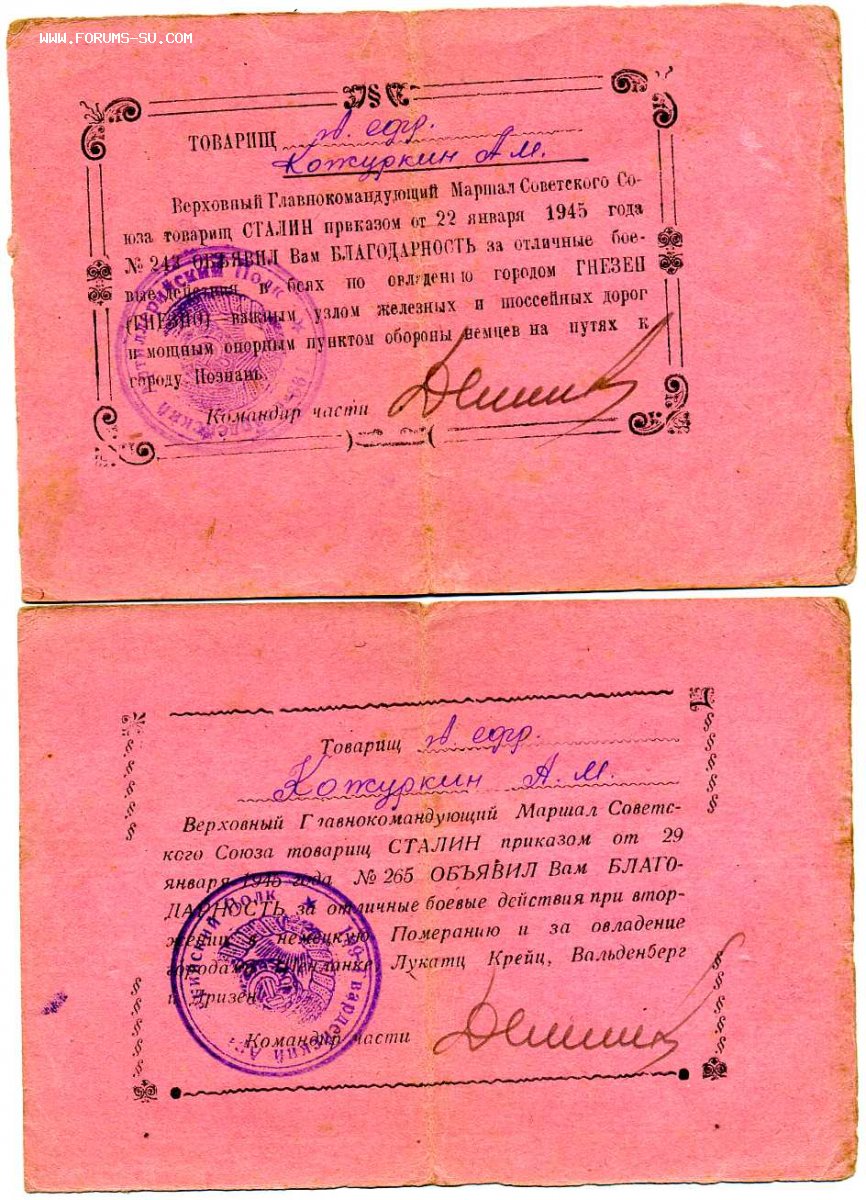 WWW.FORUMS-SU.COM
ТОВАРИЩ гв. ефр.
Кожуркин А.М.
Верховный Главнокомандующий Маршал Советского Со-
юза товарищ СТАЛИН приказом от 22 января 1945 года
№ 243 ОБЪЯВИЛ Вам БЛАГОДАРНОСТЬ за отличные бое-
вые действия в боях по овладению городом ГНЕЗЕН
(ГНЕЗНО) — важным узлом железных и шоссейных дорог
и мощным опорным пунктом обороны немцев на путях к
городу Познань.
Командир части
Товарищ гв. ефр.
Кожуркин А. М.
Верховный Главнокомандующий Маршал Советс-
кого Союза товарищ СТАЛИН приказом от 29
января 1945 года № 265 ОБЪЯВИЛ Вам БЛАГО-
ДАРНОСТЬ за отличные боевые действия при втор-
жении в немецкую Померанию и за овладение
городами Шенланке Лукатц Крейц, Вальденберг
и Дризен
Командир части